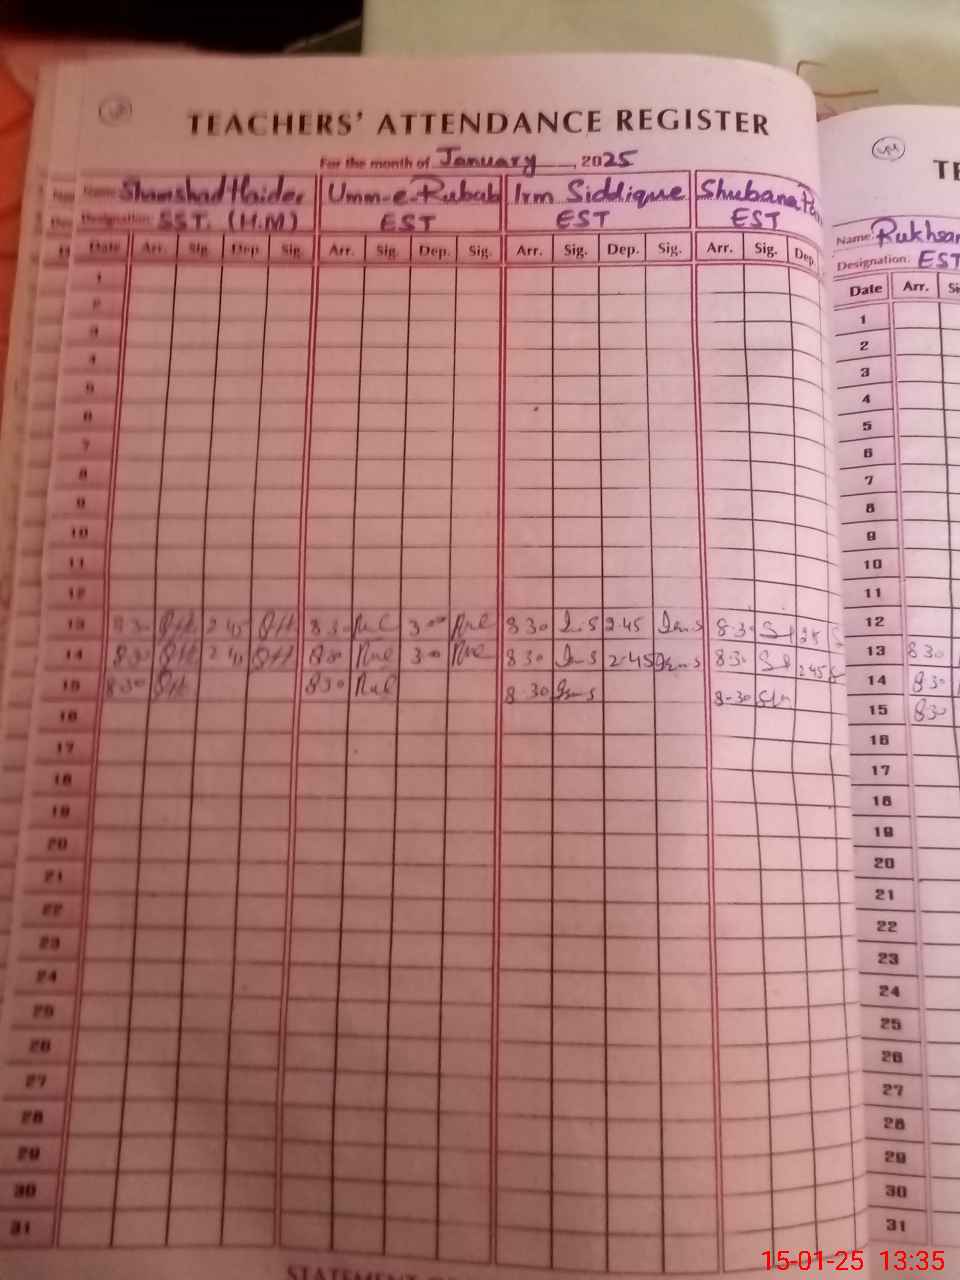 TEACHERS' ATTENDANCE REGISTER
For the month of January, 2025
Name: Shamshad Haider Umm-e-Rubab Irm Siddique Shubana
Designation: SST. (H.M) EST EST EST
Date Arr. Sig. Dep. Sig. Arr. Sig. Dep. Sig. Arr. Sig. Dep. Sig. Arr. Sig. Dep.
1
2
3
4
5
6
7
8
9
10
11
12
13 8 30 2 45 8 30 3 00 8 30 2.45 8.30
14 8 30 2 45 8 30 3 00 8 30 2.45 8.30 2.45
15 8 30 8 30 8.30 8-30
16
17
18
19
20
21
22
23
24
25
26
27
28
29
30
31
TE
Name: Rukhsan
Designation: EST
Date Arr. Si
1
2
3
4
5
6
7
8
9
10
11
12
13 8 30
14 8 30
15 8 30
16
17
18
19
20
21
22
23
24
25
26
27
28
29
30
31
15-01-25 13:35